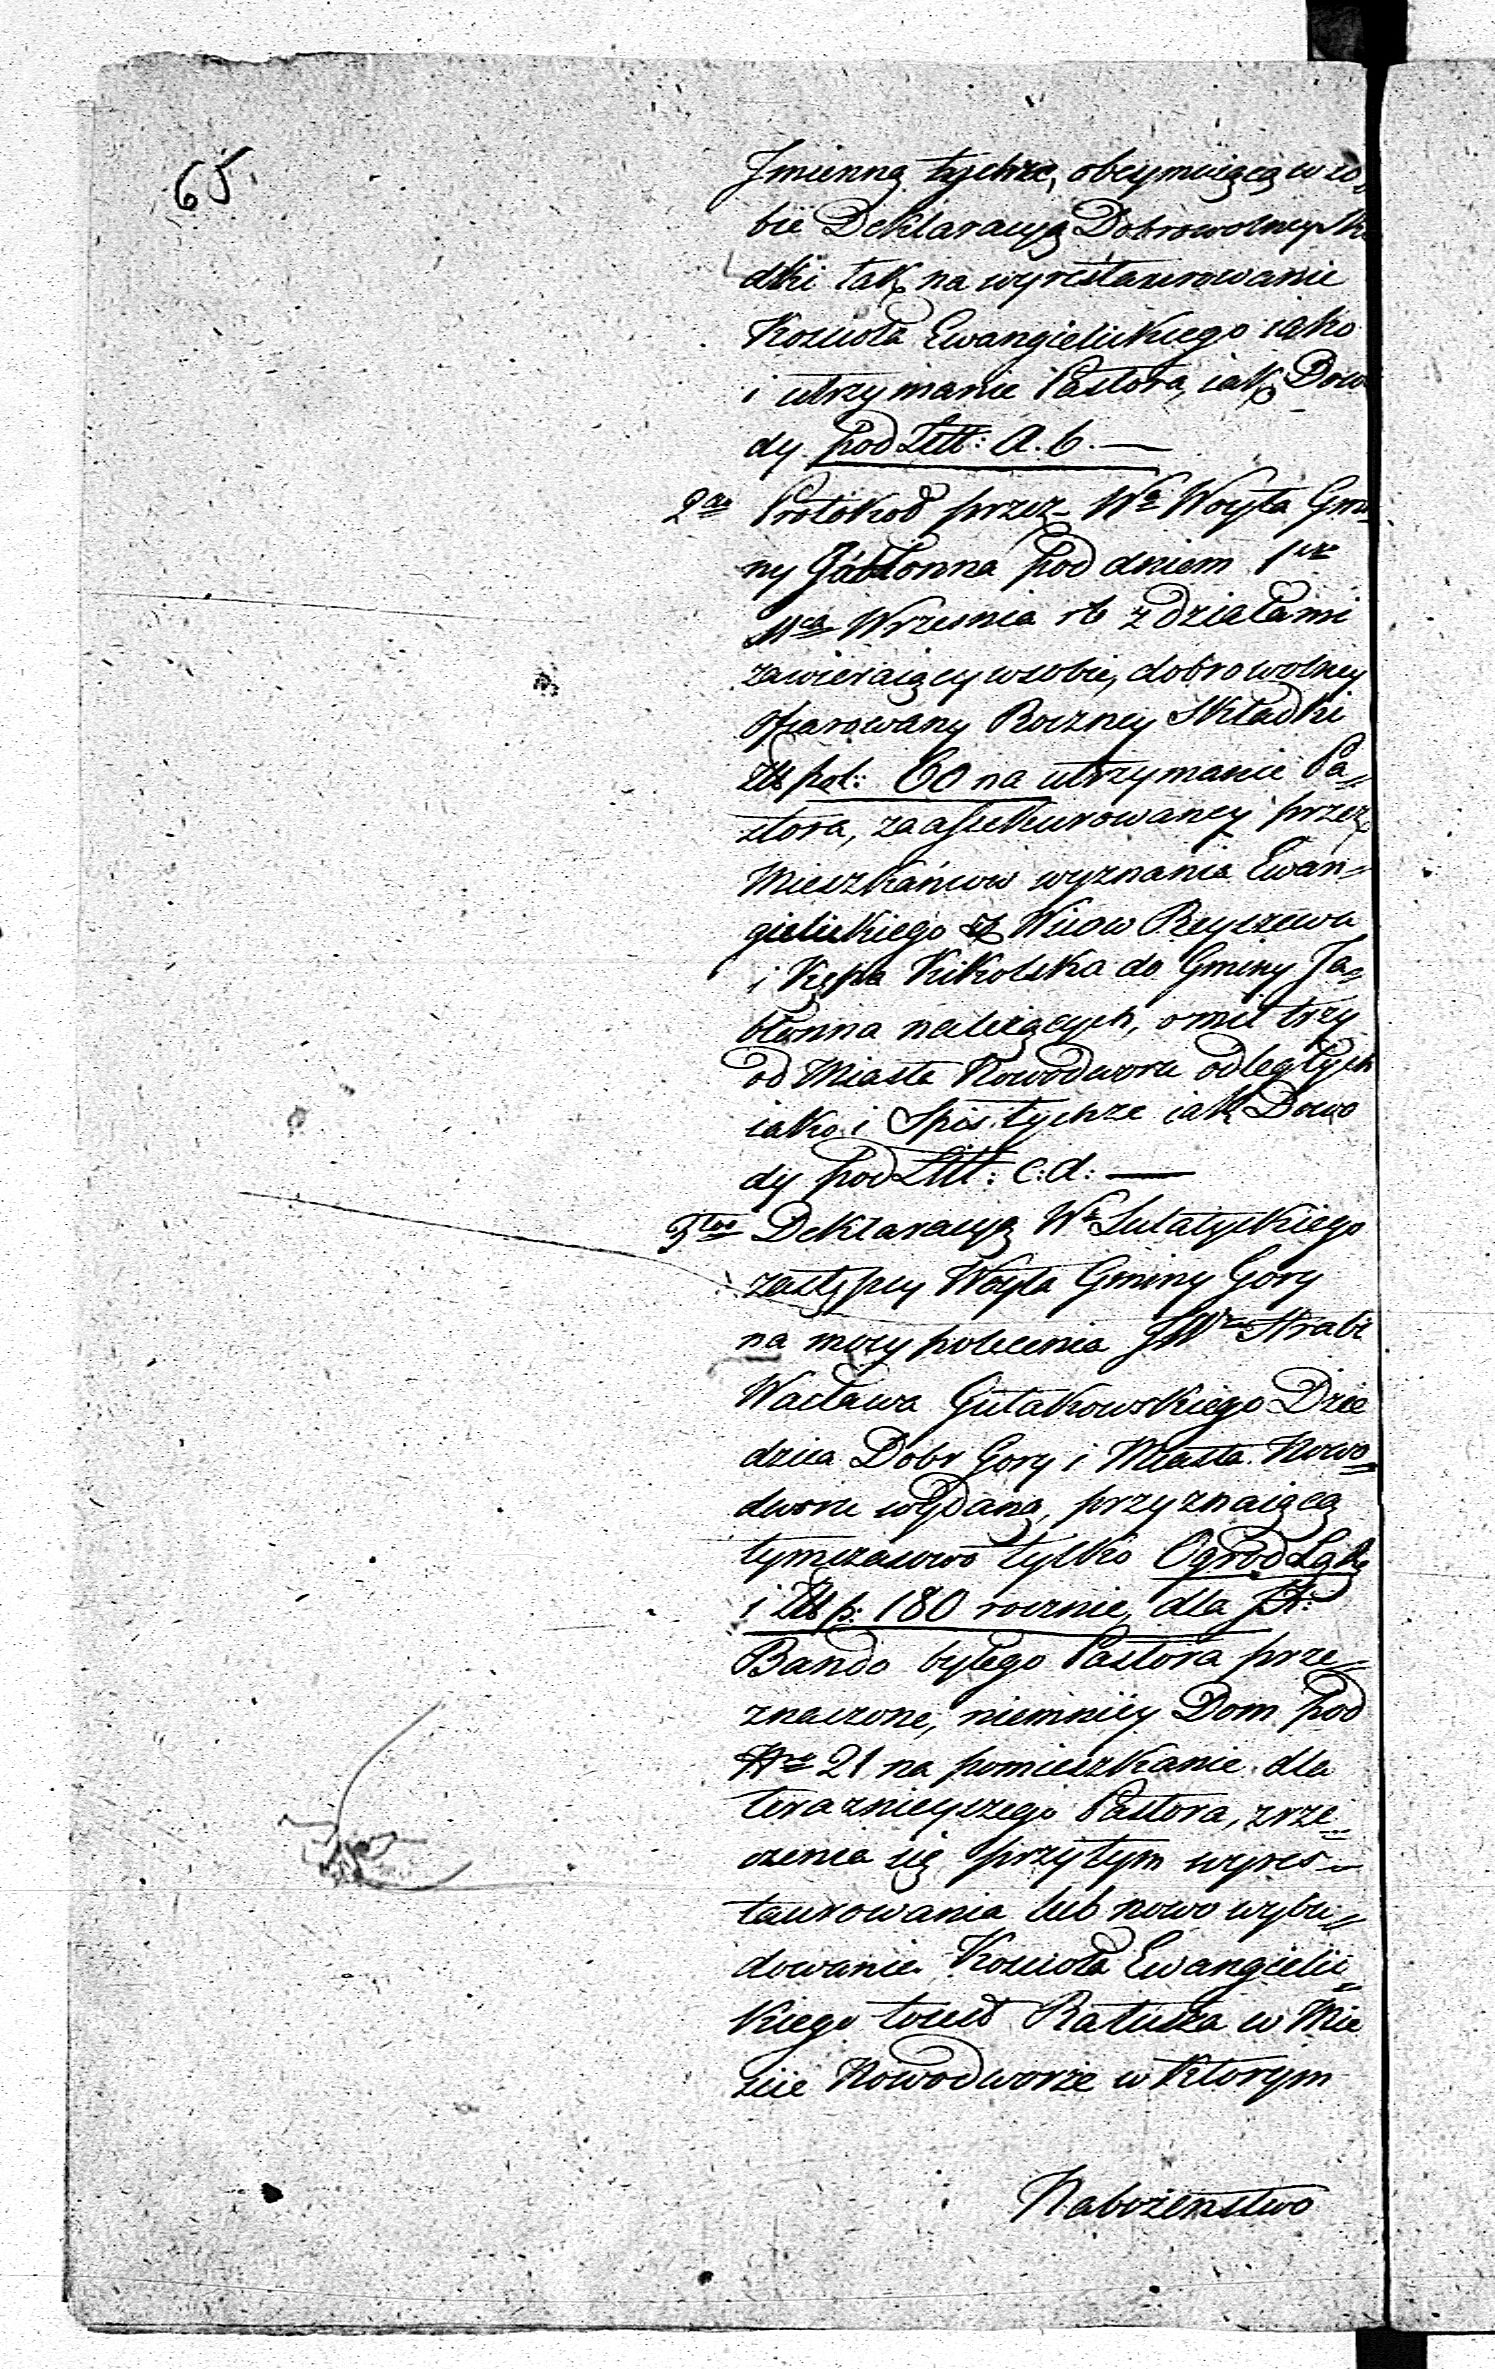 65.
Jmienną tychże, obeymuiącą w so-
bie Deklaracyą Dobrowolney Skł
dki tak na wyrestaurowanie
Koscioła Ewangielickiego iako
i utrzymanie Pastora, iak Dowo
dy pod Litt: A. b. —
2do Protokoł przez Wo Woyta Gmi-
ny Jabłonna pod dniem 1
Mca Wrzesnia rb zdziałami
zawieraiący w sobie, dobrowolney
ofiarowany Roczney Składki
Złł pol: 60 na utrzymanie Pa-
stora, zaassekurowaney przez
Mieszkańców wyznania Ewan-
gielickiego z Wiow Ryszewa
i Kępa Kikolska do Gminy Ja-
błonna należących, o mil trzy
od Miasta Nowodworu odległych
iako i Spis tychże iak Dowo
dy pod Litt: c: d: —
3tio Deklaracyą Wo Lutatyckiego
zastępcy Woyta Gminy Gory
na mocy polecenia JWo Hrabi
Wacława Gutakowskiego Dzie
dzica Dobr Gory i Miasta Nowo-
dworu wydaną, przyznaiącą
tymczasowo tylko Ogrod Łąkę
i Złł p: 180 rocznie, dla JX:
Bando byłego Pastora prze-
znaczone, niemniey Dom pod
Nro 21 na pomieszkanie dla
teraznieyszego Pastora, zrze-
czenia się przytym wyres-
taurowania lub nowo wybu-
dowanie Koscioła Ewangielic-
kiego toież Ratusza w Mie
scie Nowodworze w ktorym
Nabożenstwo